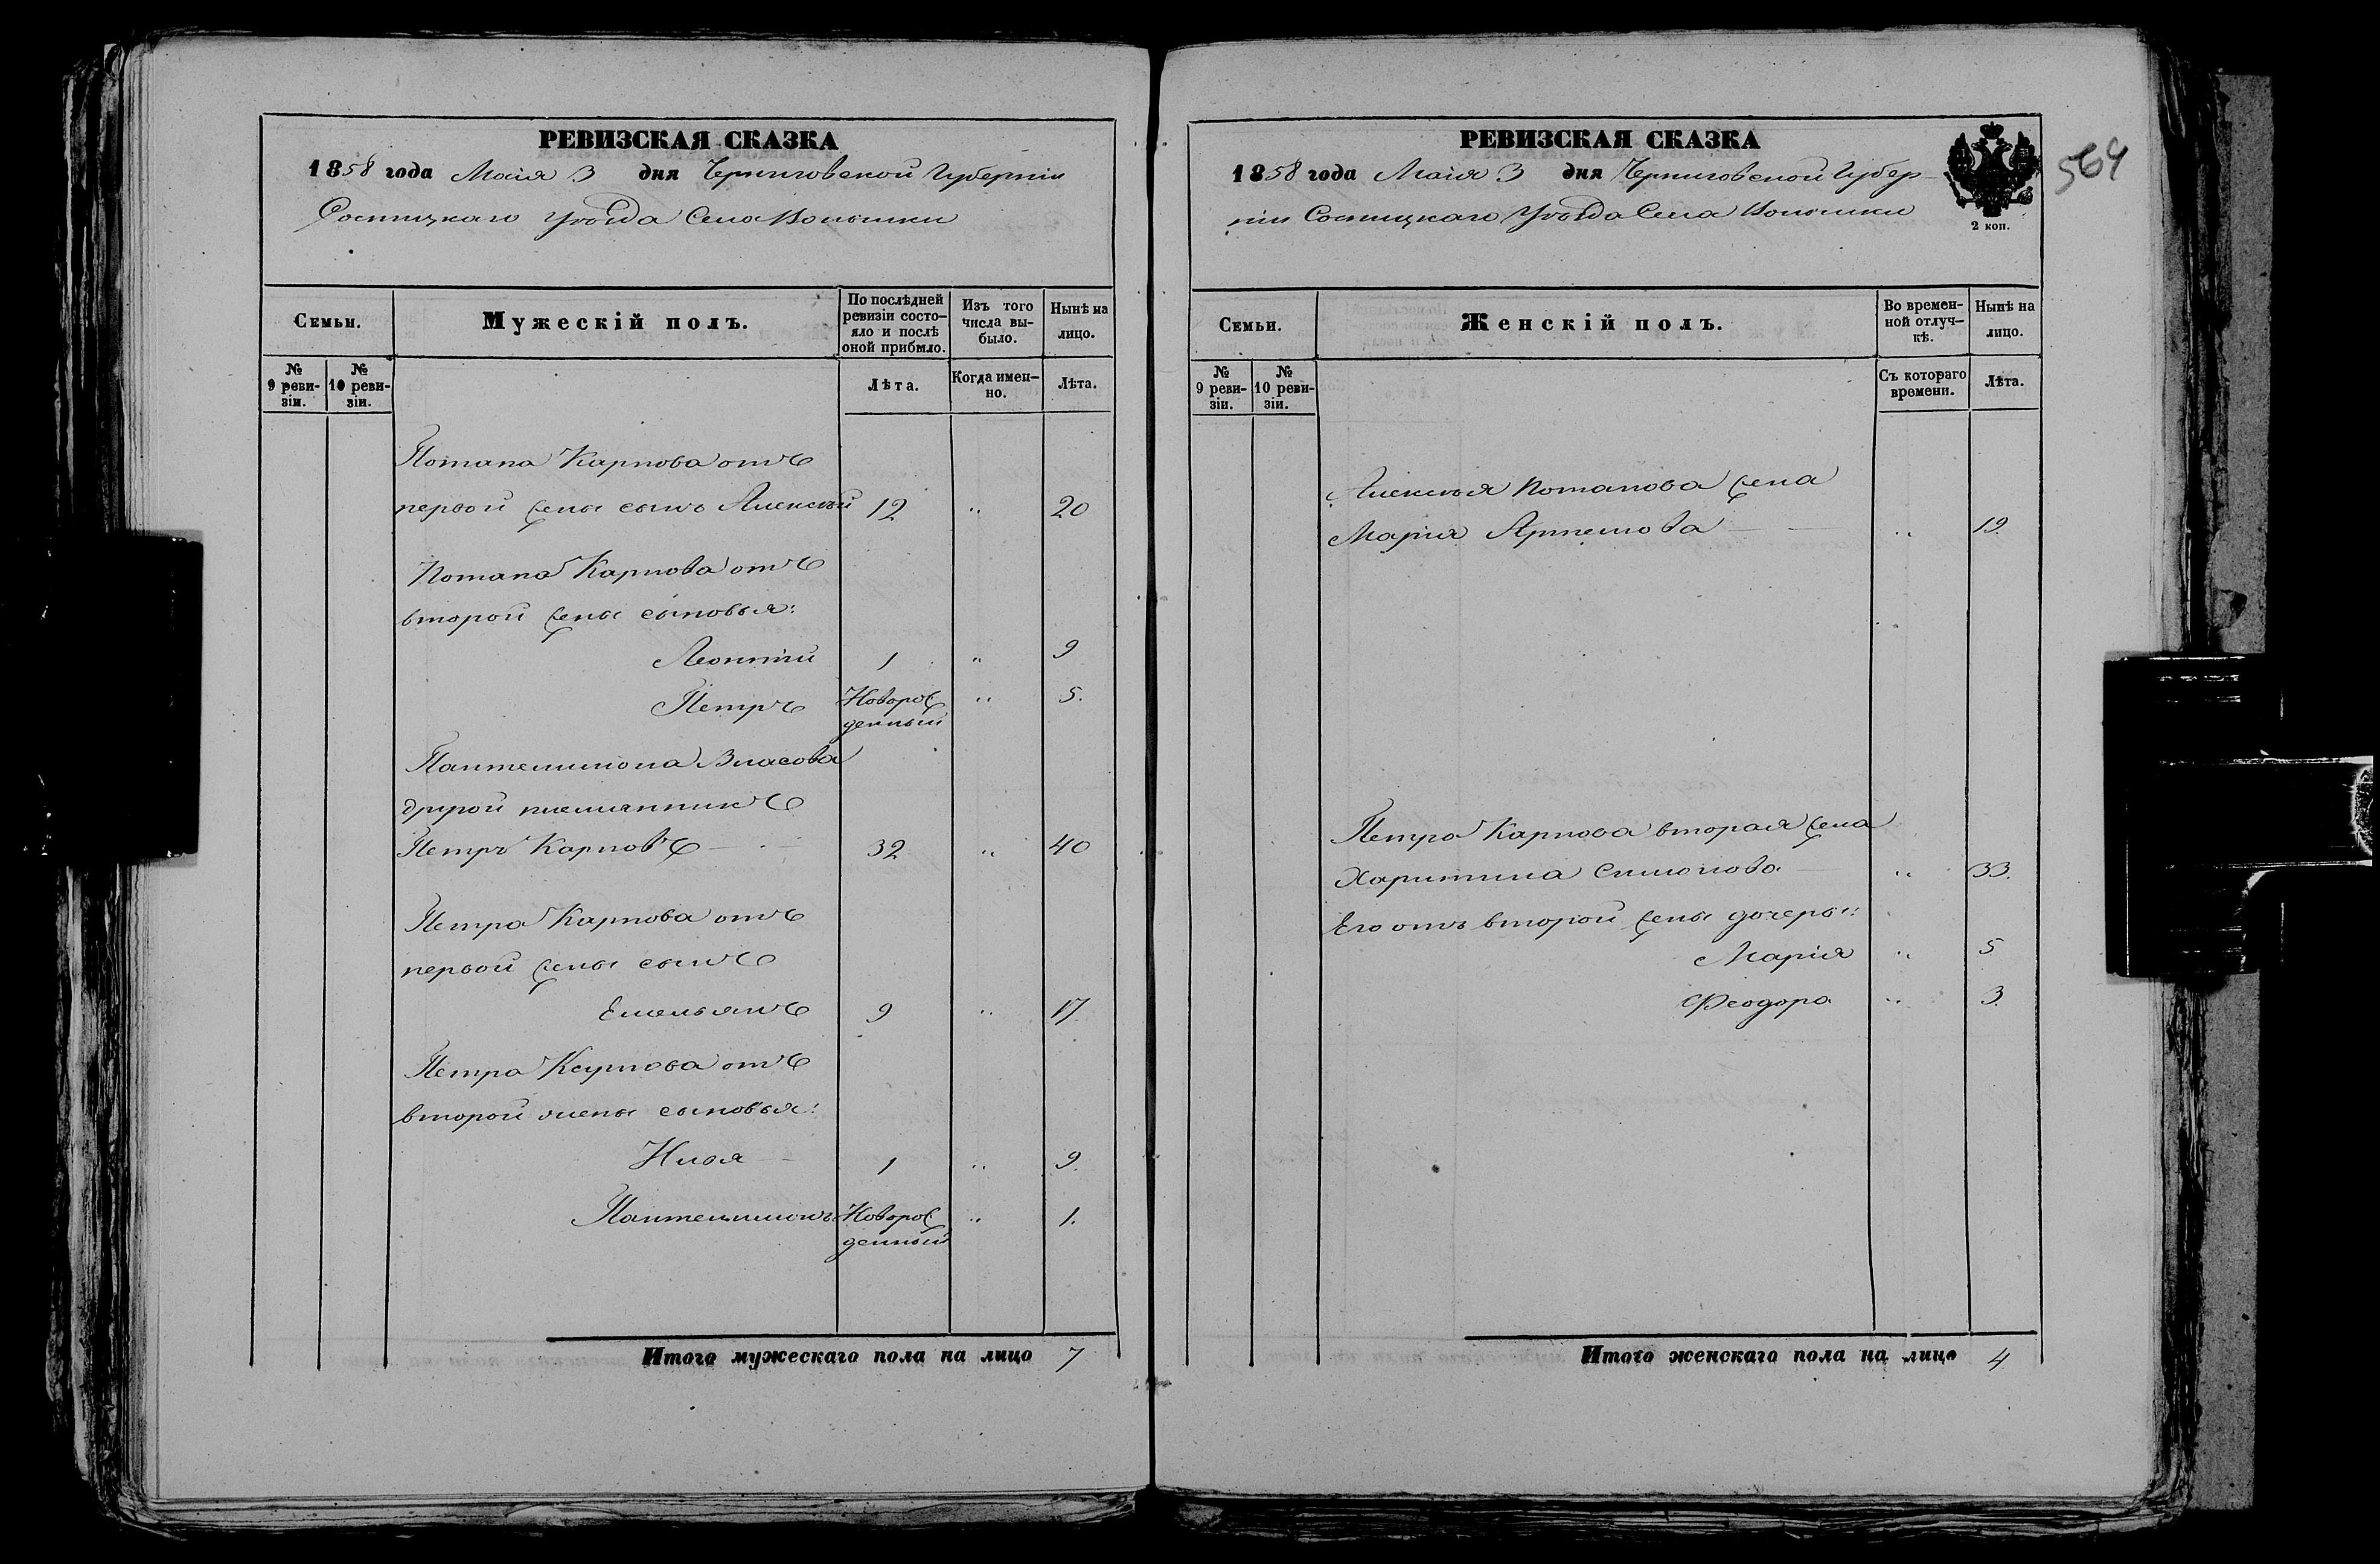 РЕВИЗСКАЯ СКАЗКА
1858 года Маія 3 дня Черниговской Губерніи
Сосницкаго Уѣзда Села
Семьи.
Мужескій полъ.
По послѣдней ревизіи состо-
яло и послѣ
оной прибыло.
Изъ того
числа вы-
было.
Нынѣ на
лицо.
№
9 реви-
зіи.
№
10 реви-
зіи.
Лѣта.
Когда имен-
но.
Лѣта.
Потапа Карпова отъ
первой жены сынъ Алексѣй 12 " 20
Потапа Карпова отъ
второй жены сыновья:
Леонтій 1 " 9
Петръ Новорож
денный " 5.
Пантелимона Власова
другой племянникъ
Петръ Карповъ 32 " 40
Петра Карпова отъ
первой жены сынъ
Емельянъ 9 " 17
Петра Карпова отъ
второй жены сыновья:
Илья 1 " 9.
Пантелимонъ Новорож
денный " 1.
Итого мужескаго пола на лицо 7
РЕВИЗСКАЯ СКАЗКА
1858 года Маія 3 дня Черниговской Губер
ніи Сосницкаго Уѣзда Села
2 коп.
564
Семьи.
Женскій полъ.
Во времен-
ной отлуч-
кѣ.
Нынѣ на
лицо.
№
9 реви-
зіи.
№
10 реви-
зіи.
Съ котораго
времени.
Лѣта.
Алексѣя Потапова жена
Марія Артемова " 19.
Петра Карпова вторая жена
Харитина Симонова " 33.
Его отъ второй жены дочеры:
Марія " 5
Феодора " 3.
Итого женскаго пола на лицо 4